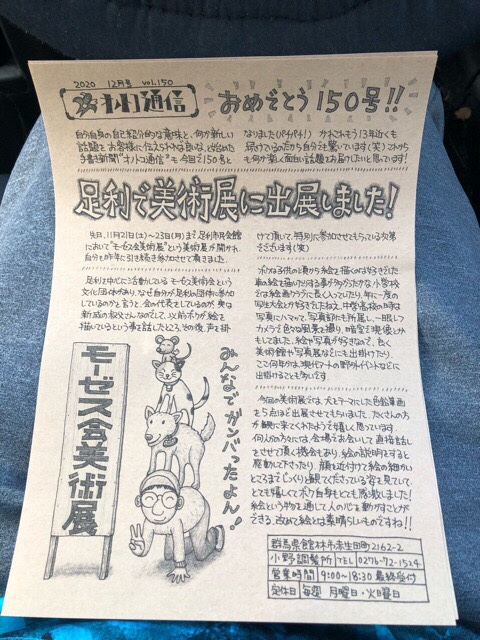 2020 12月号 vol.150
オノコ通信
おめでとう150号!!
自分自身の自己紹介的な意味と、何か新しい
話題をお客様に伝えられれば良いなと始めた
手書き新聞"オノコ通信"も今回で150号と
なりました(パチパチ!) かれこれもう13年近くも
続けているのだから自分でも驚いています(笑)これから
も何か楽しく面白い話題でお届けしたいと思います!
足利で美術展に出展しました!
先日、11月21日(土)~23日(月)まで足利市民会館
において"モーゼス会美術展"という美術展が開かれ
自分も昨年に引き続き参加させて頂きました。
足利を中心に活動しているモーゼス美術会という
文化団体があり、なぜ自分が足利の団体に参加
しているのかと言うと、会の代表をしているのが奥は
新成のお父さんなのでして、以前ボクが絵を
描いているという事を話したところ、その後、声を掛
けて頂いて、特別に参加させてもらっている次第
でございます(笑)
ボクは子供の頃から絵を描くのが好きでした
車の絵を描いたりする事が多かったかな、小学校で
は絵画クラブに長く入っていたり、年に一度の
写生大会とか好きでしたねェ。中学、高校の時は
写真にハマッて、写真部にも所属し、一眼レフ
カメラで色々な風景を撮り、暗室で現像とか
もしてました。絵や写真が好きなので、良く
美術館や写真展などにも出掛けたり、
ここ何年かは現代アートの野外イベントなどに
出掛けることも多いです
今回の美術展では、犬をテーマにした色鉛筆画
を5点ほど出展させてもらいました。たくさんの方
が観に来てくれたようで嬉しく思っています。
何人かの方々には、会場でお会いして直接話し
させて頂く機会もあり、絵の説明をすると
感動して下さったり、顔を近付けて絵の細かい
ところまでじっくり観てくださっている姿を見ていて、
とても嬉しくてボク自身もとても感動しました!
絵という物を通して人の心を動かすことが
できる、改めて絵とは素晴らしいものですね!!
みんなでガンバったよん!
モーゼス会美術展
群馬県館林市赤生田町2162-2
小野調髪所 TEL 0276-72-1524
営業時間 9:00~18:30 最終受付
定休日 毎週 月曜日・火曜日